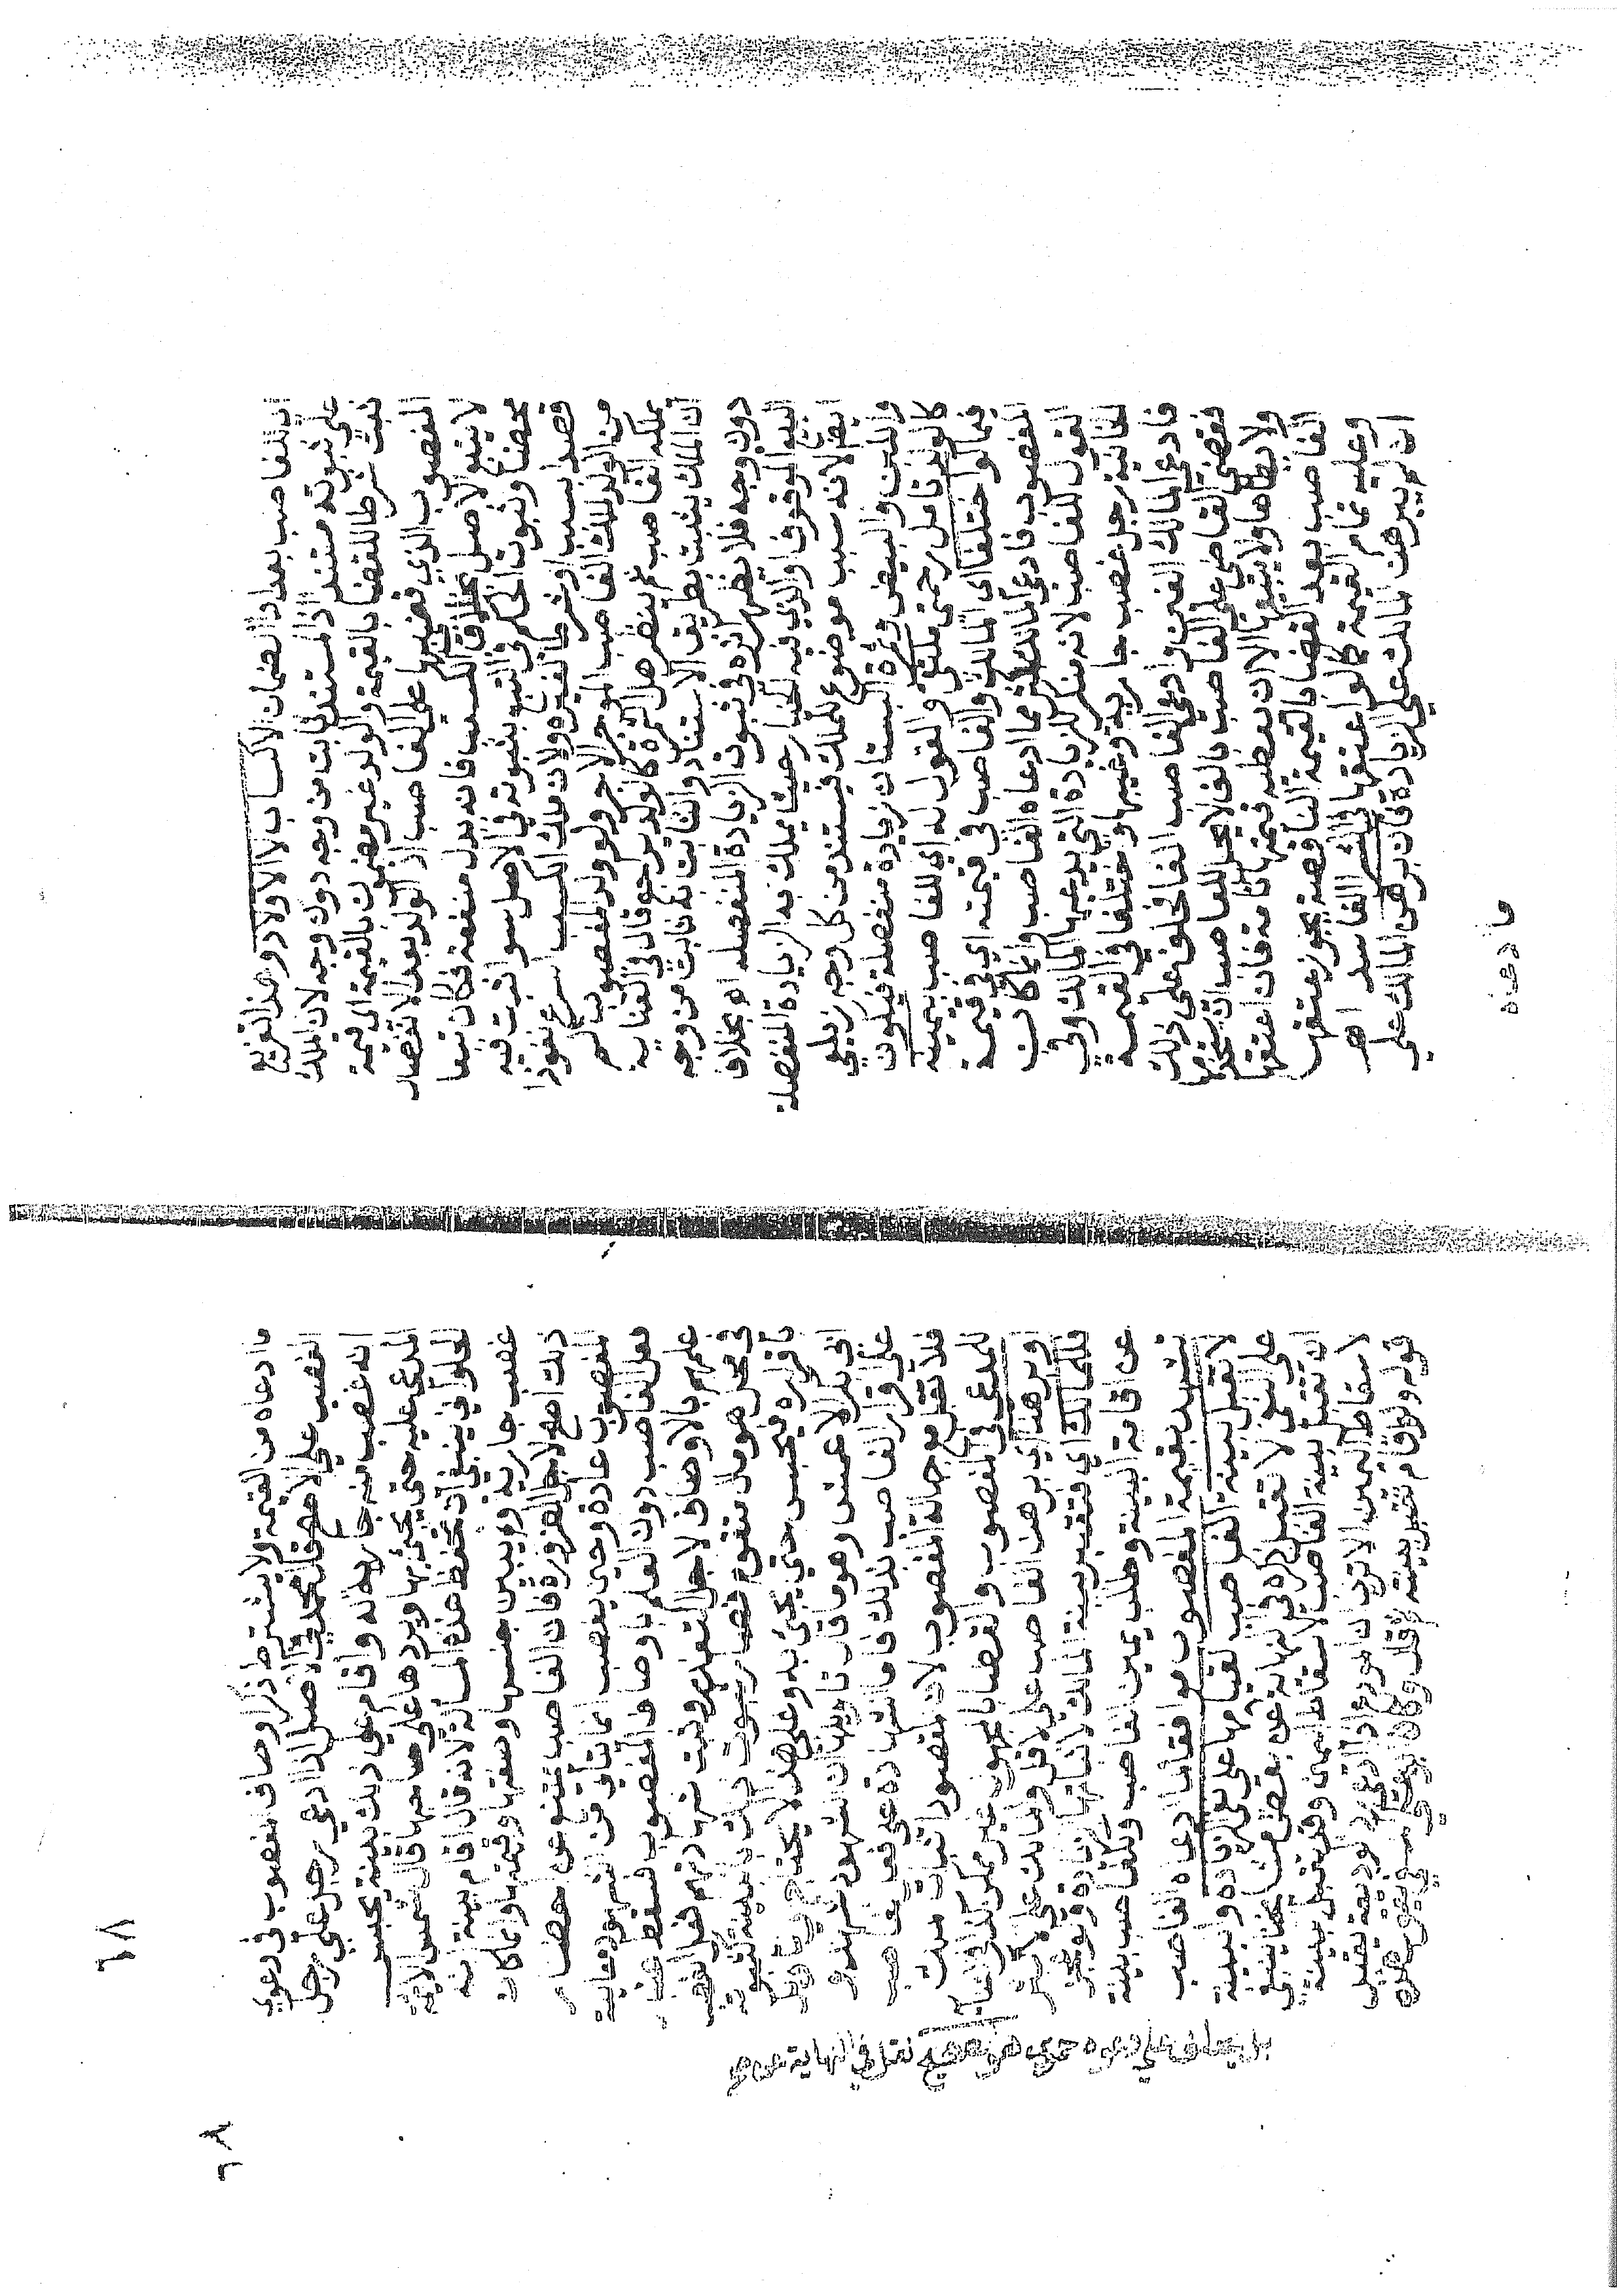 ان للغاصب بعد اداء الضمان الاكساب لا الاولاد وهذا التفريع
على ثبوته مستندا اذ المستند ثابت من وجه دون وجه لان الملك
ثبت شرطا للقضا بالقيمة والولد غير مضمون بالقيمة اي قيمة
المغصوب الذي قضي بها على الغاصب اذ الولد بعد الانفصال
لا يتبع الاصل بخلاف الكسب فانه بدل منفعة فكان تبعا
محضا وثبوت الحكم في التبع بثبوته في الاصل سوا ثبت فيه
قصدا بسبب او شرطا لغيره ولان ملك الكسب اسرع نفوذا
من الولد لملك الغاصب الموجر الاجر ولو ولد المغصوب لم
يملكه الغاصب ثم ينظر هل الثمرة كالولد يراجع وقال في العناية
ان الملك يثبت بطريق الاستناد والثابت به ثابت من وجه
دون وجه فلا يظهر اثره في ثبوت الزيادة المنفصلة اه بخلاف
البيع الموقوف او الذي فيه الخيار حيث يملك به الزيادة المنفصلة
ايضا لانه سبب موضوع للملك فيستند من كل وجه زيلعي
واللبن والبيض وثمرة البستان زيادة منفصلة فيكون
كالولد تامل رحمتي ملتقى والقول له اي للغاصب بيمينه
فيما لو اختلفا اي المالك والغاصب في قيمته اي في قيمة
المغصوب فادعى المالك اكثر مما ادعاه الغاصب وانما كان
القول للغاصب لانه منكر للزيادة التي يدعيها المالك وفي
الخانية رجل غصب جارية وغيبها واختلفا في القيمة
فادعى المالك الفين وادعى الغاصب الفا فحلف على ذلك
فقضى القاضي على الغاصب بالف لا يحل للغاصب ان يستخدمها
ولا يطاها ولا يبيعها الا ان يعطيه قيمتها تامة فان اعتقها
الغاصب بعد القضا بالقيمة الناقصة يجوز عتقها
وعليه تمام القيمة كما لو اعتقها في الشرا الفاسد اهـ
ان لم يبرهن المالك على الزيادة فان برهن المالك على
ما ادعاه
٦٨
ما ادعاه من القيمة ولا يشترط ذكر اوصاف المغصوب في دعوي
الغصب على الاصح قال محمد في الاصل اذا ادعى رجل على رجل
انه غصب منه جارية له واقام على ذلك بينة يحبس
المدعى عليه حتى يجئ بها ويردها على صاحبها قال شمس الائمة
الحلواني ينبغي ان تحفظ هذه المسألة لانه قال اقام بينة انه
غصب جارية ولم يبين جنسها وصفتها وقيمتها وانما كان
ذلك اصح لاجل الضرورة فان الغاصب يمتنع عن احضار
المغصوب عادة وحين يغصب انما يتاتى من الشهود معاينة
فعل الغاصب دون العلم باوصاف المغصوب فسقط عنه
علمهم بالاوصاف لاجل التعذر وثبت بشهادتهم فعل الغصب
في محل هو مال متقوم فصار ثبوت ذلك بالبينة كثبوته
باقراره فيحبس حتى يجئ به وعلى هذا لا يحتاج الى تاويل
ابي بكر الاعمش وهو ما قال تاويلها ان الشهود شهدوا
على اقرار الغاصب بذلك فاما الشهادة على فعل الغاصب
فلا تقبل مع جهالة المغصوب لان المقصود اثبات ملك
المدعى في المغصوب والقضا بالمجهول غير ممكن كذا في العناية
او برهنا اي برهن الغاصب على الاقل والمالك على الاكثر
فللمالك اي فتعتبر بينة المالك لاثباتها الزيادة ولو عجز
عن اقامة البينة وطلب يمين الغاصب وللغاصب بينة
تشهد بقيمة المغصوب موافقة لما ادعاه الغاصب
لا تقبل بينة الغاصب لقيامها على نفي الزيادة والبينة
على النفي لا تقبل ذكره في النهاية عن بعض مشايخنا ينبغي
ان تقبل بينة الغاصب لاسقاط اليمين وقد تقبل بينة
لاسقاط اليمين الا ترى ان المودع اذا ادعى رد الوديعة يقبل
قوله ولو اقام تقبل بينته وكان ابو علي النسفي يقول هذه
بل يحلف على دعواه حموي هو الصحيح نقل في النهاية
٦٨